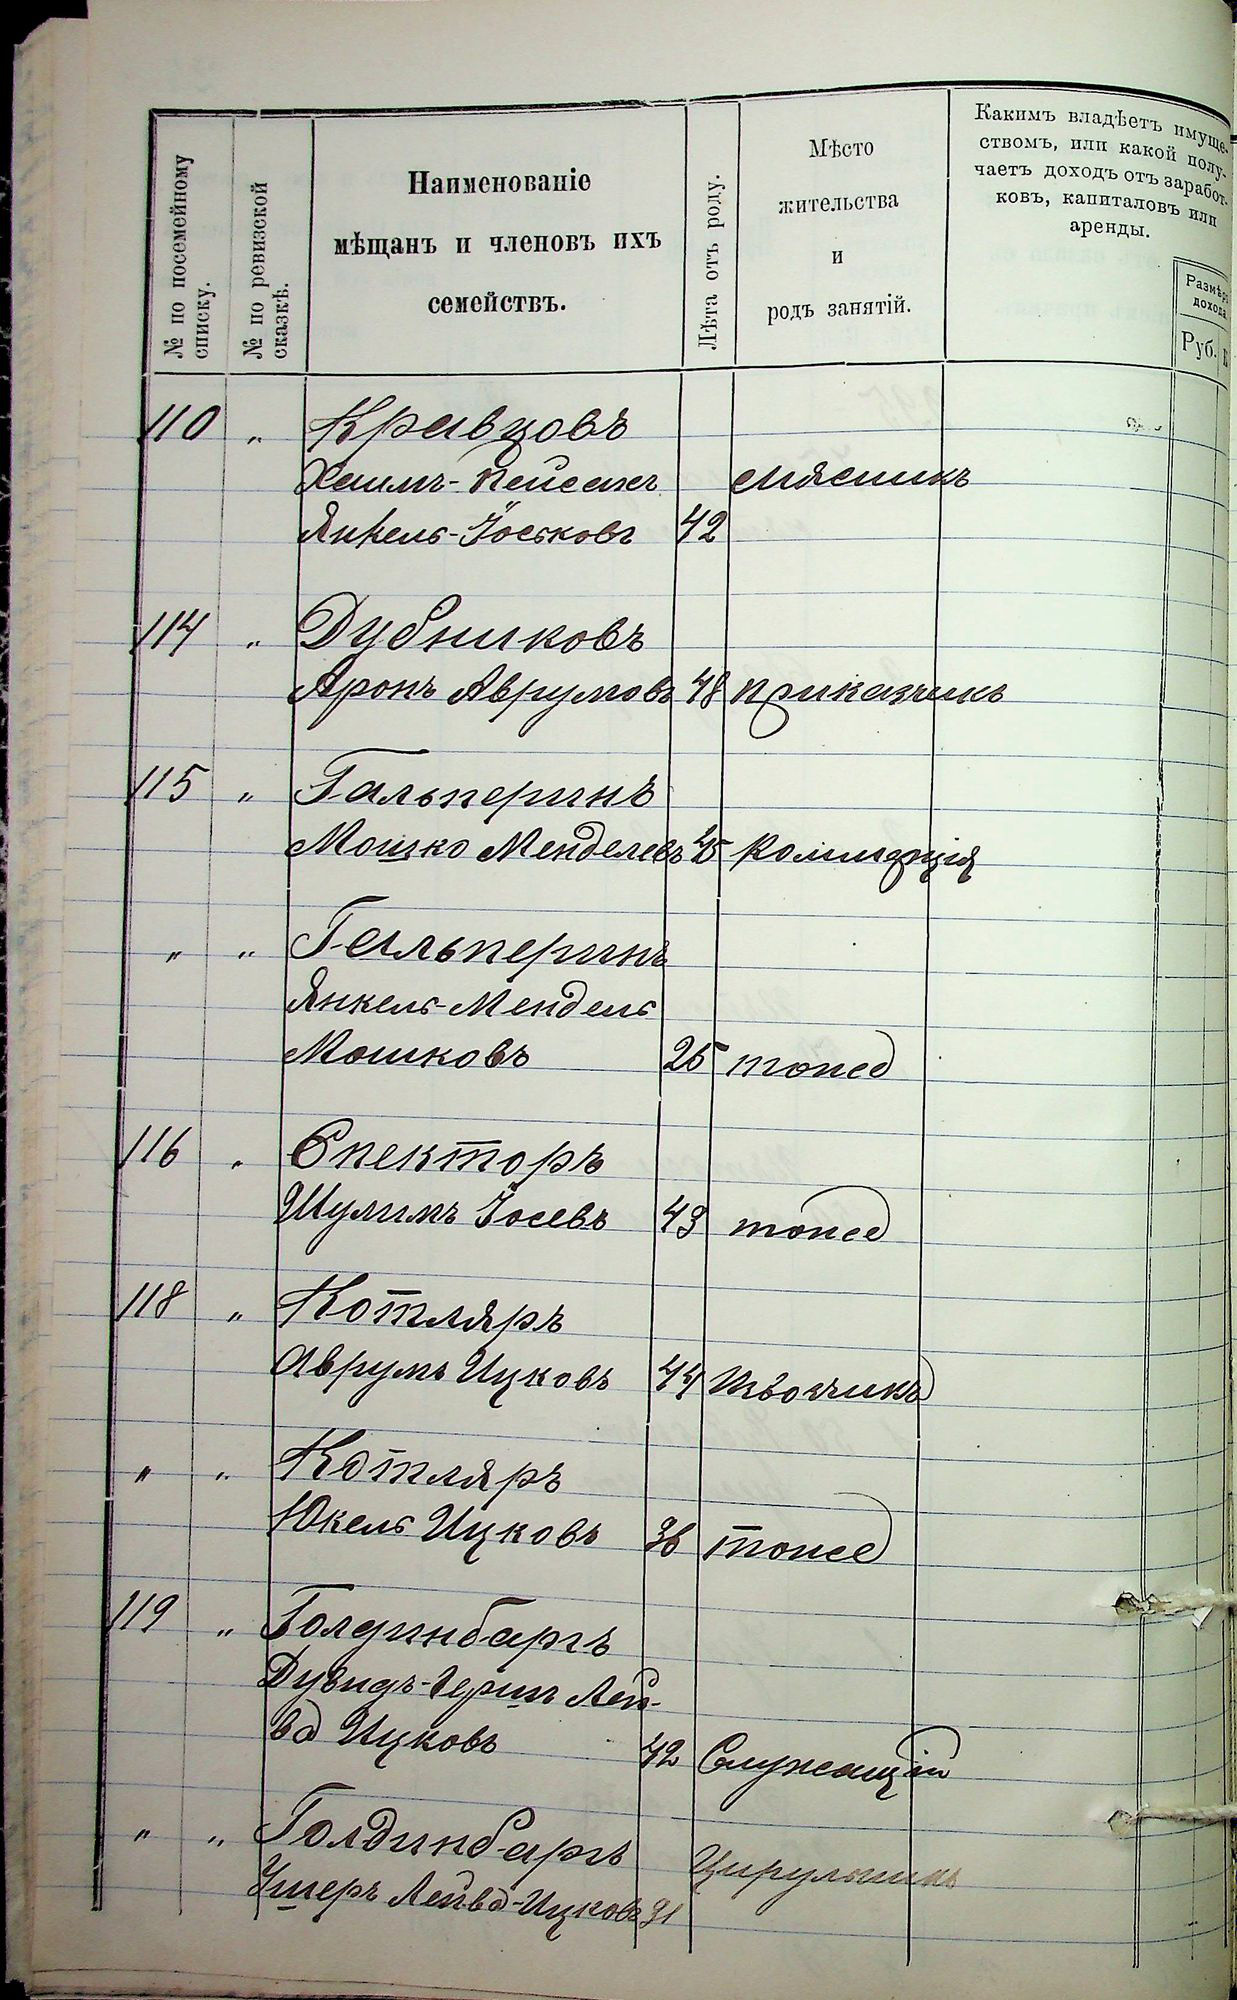 № по посемейному
списку.
№ по ревизской
сказкѣ.
Наименованіе
мѣщанъ и членовъ ихъ
семействъ.
Лѣта отъ роду.
Мѣсто
жительства
и
родъ занятій.
Какимъ владѣетъ имуще-
ствомъ, или какой полу-
чаетъ доходъ отъ заработ-
ковъ, капиталовъ или
аренды.
Размѣръ
дохода
Руб.
110 „ Кравцовъ
Хаимъ-Пейсахъ мясникъ
Янкель-Іоськовъ 42
114 „ Дубниковъ
Аронъ Аврумовъ 48 приказчикъ
115 „ Гальперинъ
Мошко Менделевъ 45 Коммерція
„ „ Гальперинъ
Янкель-Мендель
Мошковъ 25 тоже
116 „ Спекторъ
Шулимъ Іосевъ 43 тоже
118 „ Котляръ
Аврумъ Ицковъ 44 Извозчикъ
„ „ Котляръ
Юкель Ицковъ 36 тоже
119 „ Голдинбаргъ
Дувидъ-Гершъ Лей-
ба Ицковъ 42 Служащій
„ „ Голдинбаргъ Цирульникъ
Ушеръ Лейба-Ицковъ 31